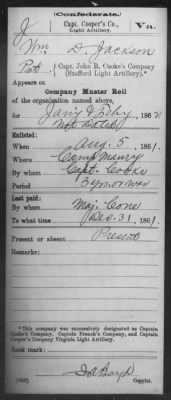 (Confederate.)
J Capt. Cooper's Co., Va.
Light Artillery.*
Wm D. Jackson
Pvt, Capt. John R. Cooke's Company
(Stafford Light Artillery).*
Appears on
Company Muster Roll
of the organization named above,
for Jan'y & Feby, 1862
Not Dated
Enlisted:
When Aug. 5, 1861.
Where Camp Maury
By whom Capt. Cooke
Period 3 yrs. or war
Last paid:
By whom Maj. Cone
To what time Dec. 31, 1861.
Present or absent Present
Remarks:
*This company was successively designated as Captain
Cooke's Company, Captain French's Company, and Captain
Cooper's Company Virginia Light Artillery.
Book mark:
(642) Copyist.